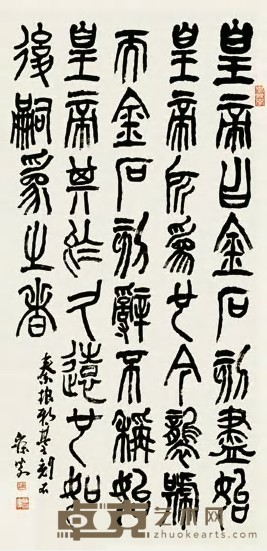 皇帝曰金石刻盡始
皇帝所為也今襲號
而金石刻辭不稱始
皇帝其於久遠也如
後嗣為之者
秦琅邪臺刻石
卓克艺术网
zhuokearts.com